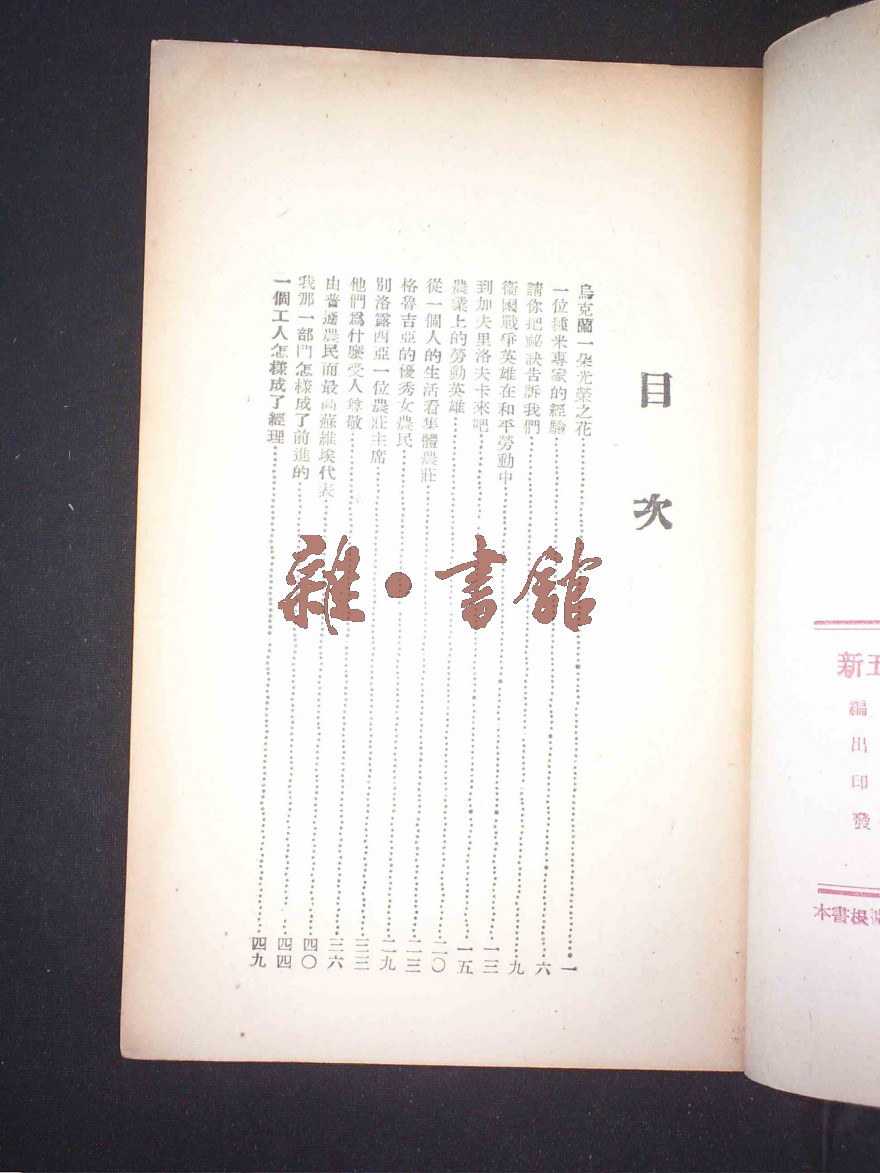 目次
烏克蘭一朵光榮之花⋯⋯一
一位種米專家的經驗⋯⋯六
請你把祕訣告訴我們⋯⋯九
衛國戰爭英雄在和平勞動中⋯⋯一三
到加夫里洛夫卡來吧⋯⋯一五
農業上的勞動英雄⋯⋯二〇
從一個人的生活看集體農莊⋯⋯二三
格魯吉亞的優秀女農民⋯⋯二九
別洛露西亞一位農莊主席⋯⋯三三
他們爲什麼受人尊敬⋯⋯三六
由普通農民而最高蘇維埃代表⋯⋯四〇
我那一部門怎樣成了前進的⋯⋯四四
一個工人怎樣成了經理⋯⋯四九
雜•書舘
新五
編
出
印
發
本書根